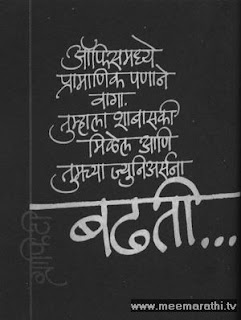 ऑफिसमध्ये
प्रामाणिक पणाने
वागा.
तुम्हाला शाबासकी
मिळेल आणि
तुमच्या ज्युनिअर्सना
बढती...
ग्राफिटी
www.meemarathi.tv